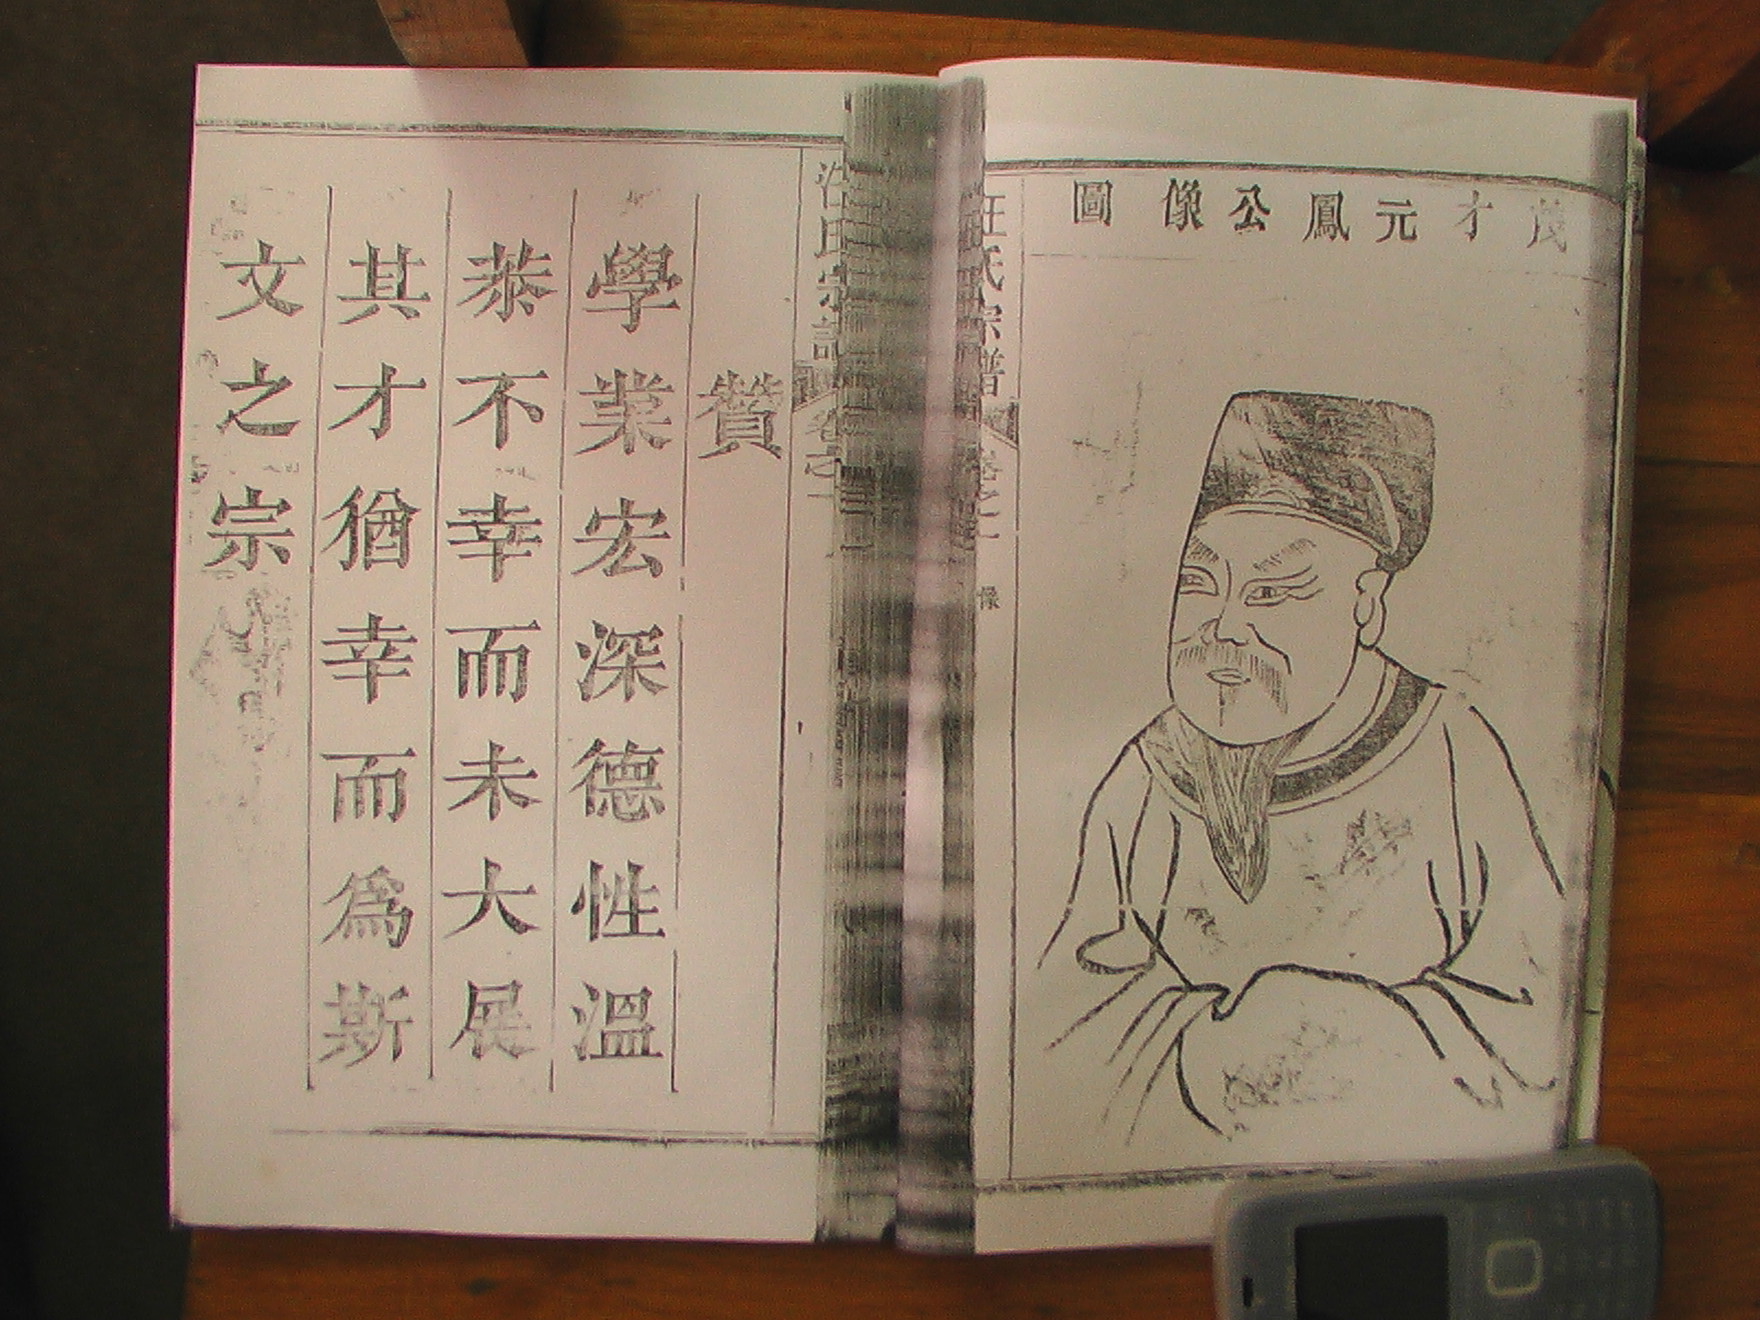 茂才元鳳公像圖
汪氏宗譜
像
贊
學業宏深德性溫
恭不幸而未大展
其才猶幸而爲斯
文之宗